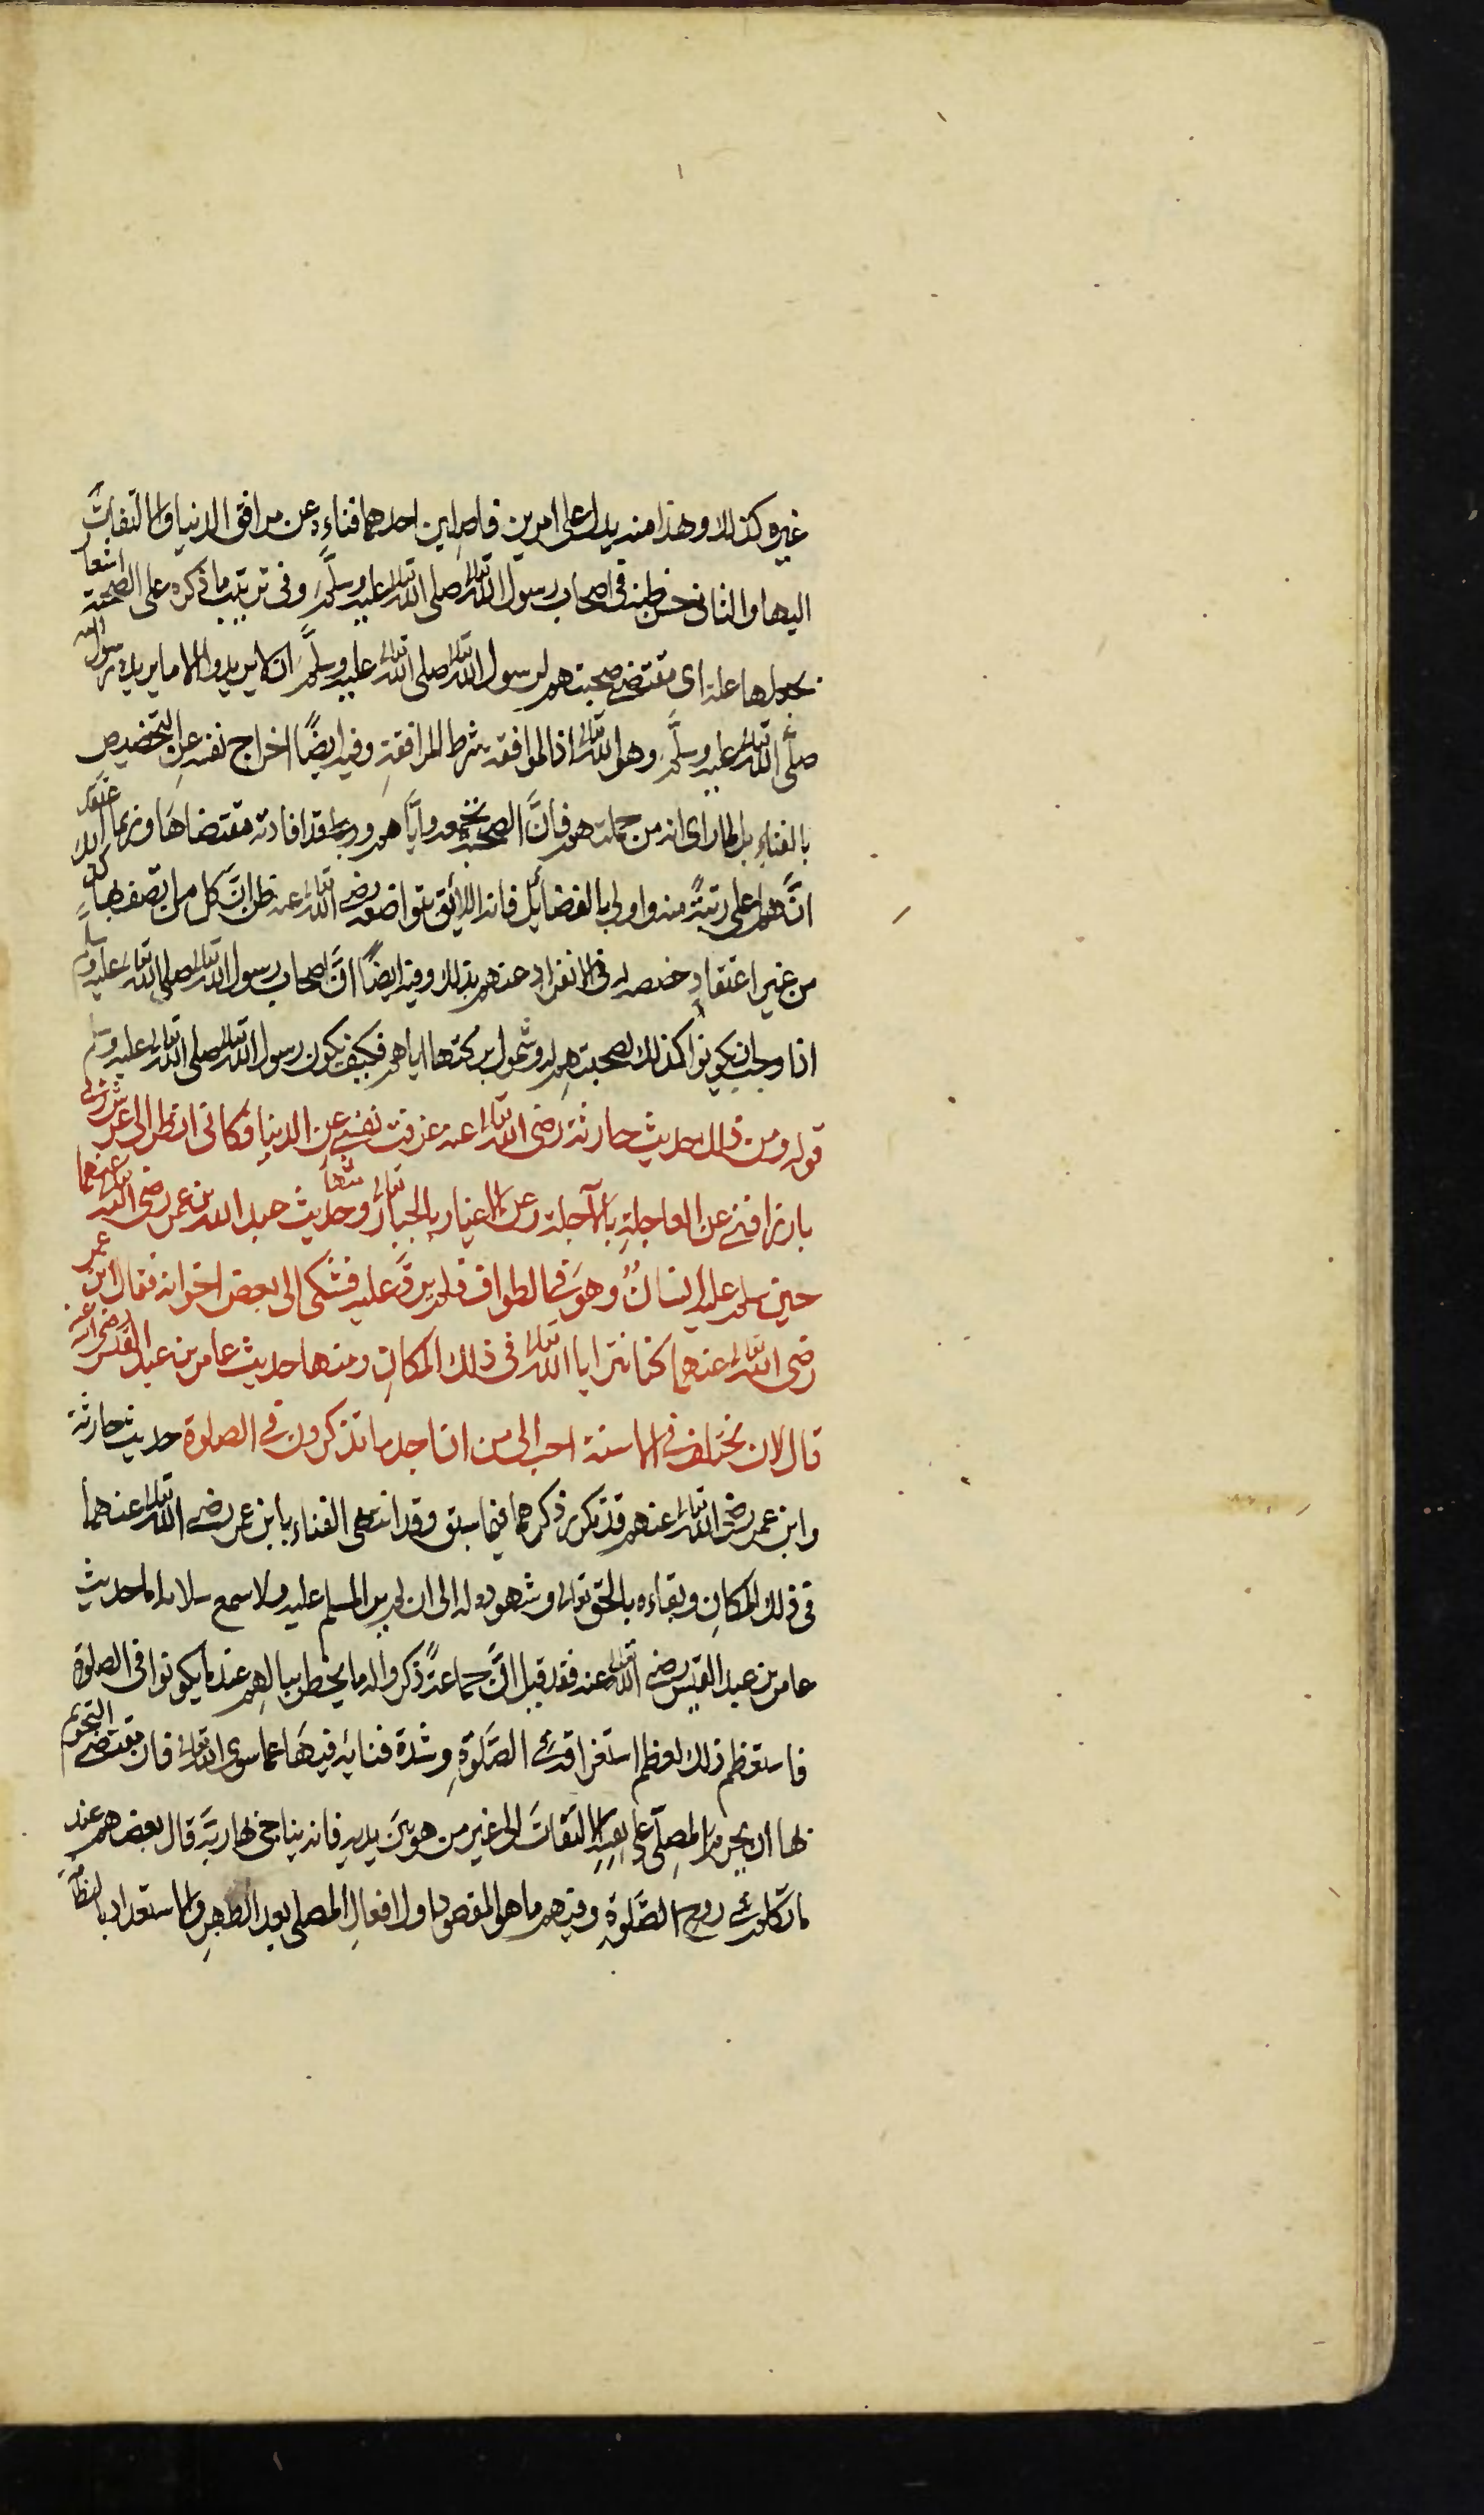 غيره كذلك وهذا منه يدل على امرين فاصلين احدهما فناءه عن مرافق الدنيا والالتفات
اليها والثاني حسن ظنه في اصحاب رسول الله تعالى صلى الله تعالى عليه وسلَّم وفي ترتيب ما ذكره على الصحبة اشعار
بجعلها علة اي مقتضى صحبتهم لرسول الله تعالى صلى الله تعالى عليه وسلَّم ان لا يريدوا الا ما يريده رسول الله
صلَّى الله تعالى عليه وسلَّم وهو الله تعالى اذ الموافقة شرط المرافقة وفيه ايضًا اخراج نفسه عن التخصيص
بالفناء بل لما راى انه من جملتهم فانَّ الصحبة تجمعه وايَّاهم وقد افادته مقتضاها وربما اعتقد
انَّهم اعلى رتبةً منه واولى بالفضائل فانه اللائق بتواضعه رضي الله تعالى عنه ظن انَّ كل من اتصف بها كذلك
من غير اعتقاد خصصه في الانفراد عنهم بذلك وفيه ايضًا انَّ اصحاب رسول الله تعالى صلى الله تعالى عليه وسلم
اذا وجب ان يكونوا كذلك لصحبتهم له وشمول بركتها اياهم فكيف يكون رسول الله تعالى صلى الله تعالى عليه وسلم
قوله ومن ذلك حديث حارثة رضى الله تعالى عنه عزفت نفسي عن الدنيا فكاني انظر الى عرش ربى
بارزا فنى عن العاجلةِ بالآجلة وعن الاغيار بالجبار تعالى ومنها وحديث عبد الله بن عمر رضى الله تعالى عنهما
حين سلم عليه انسانٌ وهو في الطواف فلم يردَّ عليه فشكى الى بعض اخوانه فقال ابن عمر
رضى الله تعالى عنهما كنا نترايا الله تعالى في ذلك المكان ومنها حديث عامر بن عبد القيس رضى الله عنه
قال لان تختلف في الاسنة احب الى من ان اجد ما تذكرون في الصلوة حديث حارثة
وابن عمر رضى الله تعالى عنهم قد تكرر ذكرهما فيما سبق وقد انتهى الفناء بابن عمر رضى الله تعالى عنهما
في ذلك المكان وبقاءه بالحق تعالى وشهوده له الى ان لم ير المسلم عليه ولا سمع سلامه اما حديث
عامر بن عبد القيس رضى الله تعالى عنه فقد قيل انَّ جماعةً ذكروا له ما يخطر ببالهم عند ما يكونوا في الصلوة
فاستعظم ذلك لعظم استغراقه في الصَّلوةِ وشدة فنائه فيها عما سوى الله تعالى فان مقتضى التحريم
لها ان يحرم المصلّى على نفسه الالتفات الى غير من هو بين يديه فانه يناجى بها ربَّه قال بعضهم عند
ما تكلم في روح الصَّلوةِ وفيهم ما هو المقصود اول افعالِ المصلى بعد الطهر والاستعداد